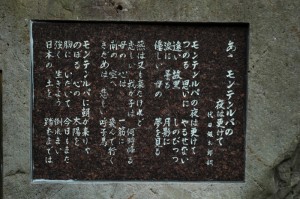 あゝ モンテンルパの
夜は更けて
代田銀太郎 詞
モンテンルパの夜は更けて
つのる思いにやるせない
遠い故郷しのびつつ
涙に曇る月影に
優しい母の夢を見る
燕は又も来たけれど
恋しい我が子は何時帰る
母の心は一筋に
南の空へ飛んで行く
さだめは悲しい呼子鳥
モンテンルパに朝が来りゃ
のぼる心の太陽を
胸にいだいて今日もまた
強く生きよう倒れまい
日本の土を踏むまでは